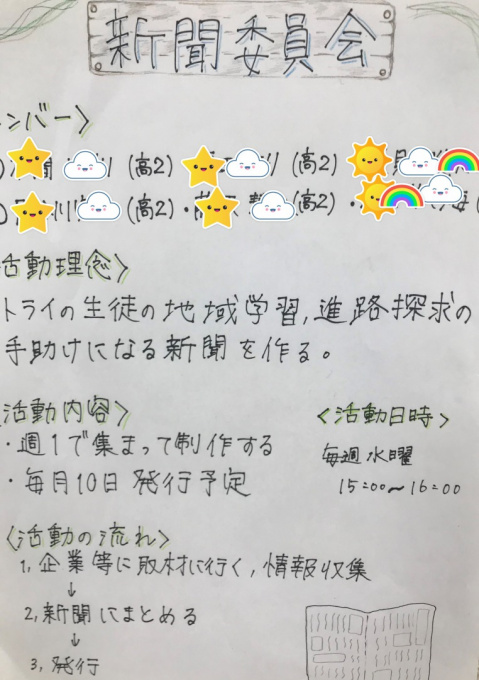 新聞委員会
ンバー〉
(高2) (高2)
(高2)・ (高2)・
活動理念〉
トライの生徒の地域学習,進路探求の
手助けになる新聞を作る。
活動内容〉
・週1で集まって制作する
・毎月10日 発行予定
〈活動日時〉
毎週水曜
15:00~16:00
〈活動の流れ〉
1,企業等に取材に行く,情報収集
↓
2,新聞にまとめる
↓
3,発行